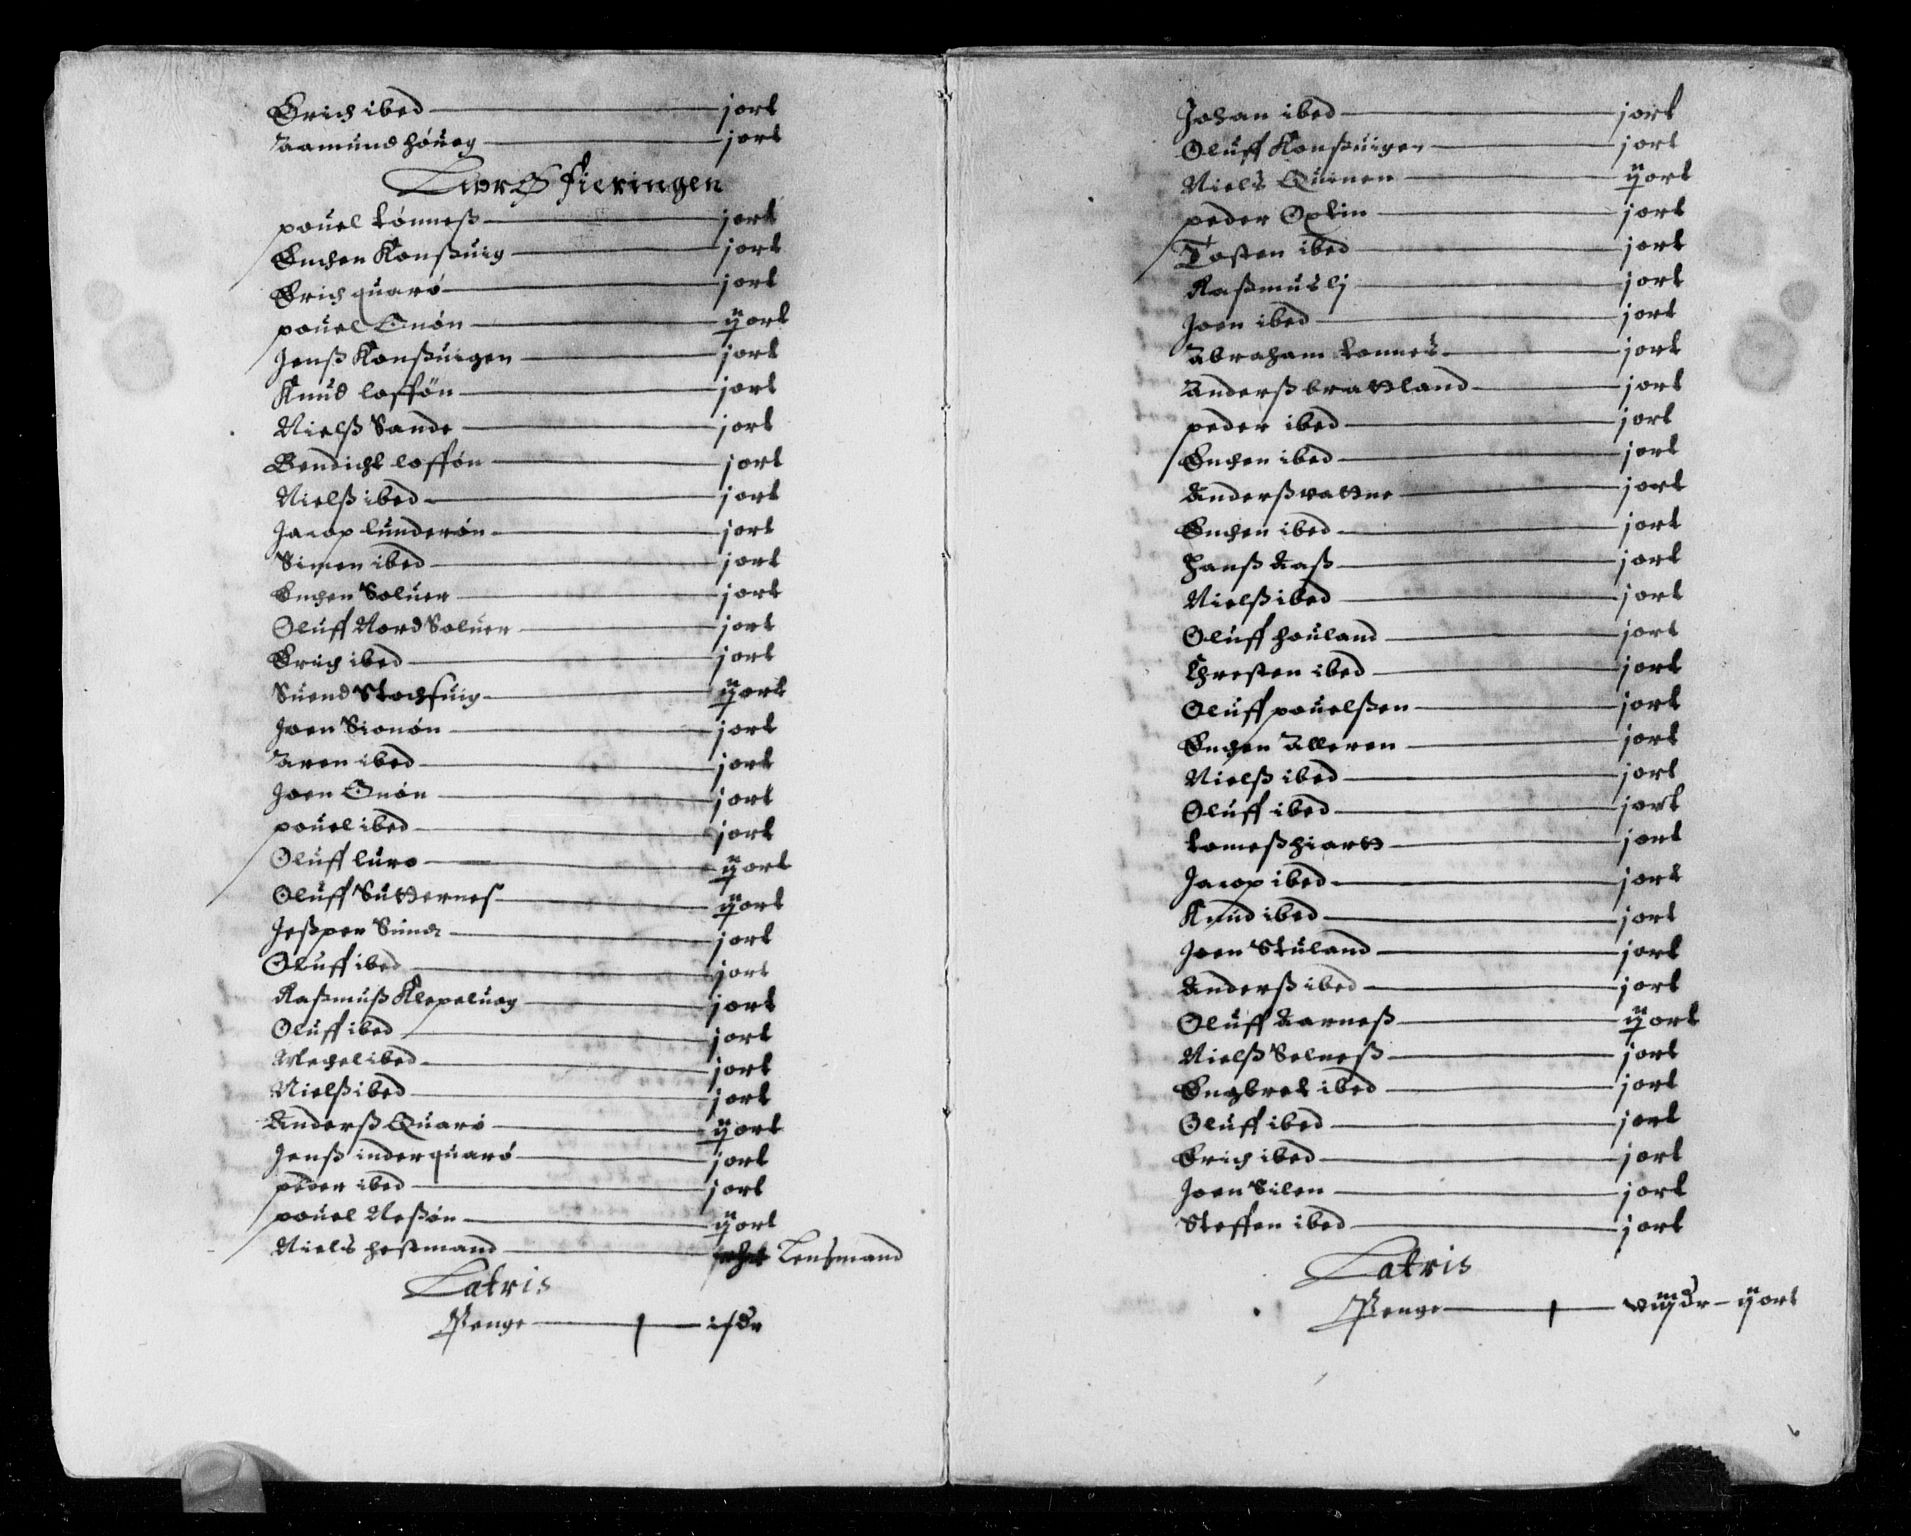 Erich ibed — j ort
Aamund Höueg — j ort
Lurö fieringen
pouel tönneß — j ort
Enchen Konßuig — j ort
Erich quarö — j ort
pouel Onön — ij ort
Jenß Konßuigen — j ort
Knud loffön — j ort
Nielß Sande — j ort
Bendicht loffön — j ort
Nielß ibed — j ort
Jacop lunderön — j ort
Simen ibed — j ort
Enchen Soluer — j ort
Oluff Nord Soluer — j ort
Erich ibed — j ort
Suend Stochsuig — ij ort
Joen Sionön — j ort
Aren ibed — j ort
Joen Onön — j ort
pouel ibed — j ort
Oluff luro — ij ort
Oluff Sutternes — ij ort
Jeßper — j ort
Oluff ibed — j ort
Raßmuß Klepeluog — j ort
Oluff ibed — j ort
Mechel ibed — j ort
Nielß ibed — j ort
Anderß Quarö — ij ort
Jenß inder quarö — j ort
peder ibed — j ort
pouel Neßön — ij ort
Niels hestmand — Lensmand
Latris
Penge —
Johan ibed — j ort
Oluff Konßuigen — j ort
Niels Quinen — ij ort
peder Optin — j ort
Tosten ibed — j ort
Raßmus lj — j ort
Joen ibed — j ort
Abraham tonnes — j ort
Anderß brattland — j ort
peder ibed — j ort
Enchen ibed — j ort
Anderß vattne — j ort
Enchen ibed — j ort
Hanß Aaß — j ort
Nielß ibed — j ort
Oluff houland — j ort
Chresten ibed — j ort
Oluff pouelßen — j ort
Enchen Alleren — j ort
Nielß ibed — j ort
Oluff ibed — j ort
tomeß hiartt — j ort
Jacop ibed — j ort
Knud ibed — j ort
Joen Stuland — j ort
Anderß ibed — j ort
Oluff Aarneß — ij ort
Nielß Selneß — j ort
Engbret ibed — j ort
Oluff ibed — j ort
Erich ibed — j ort
Joen Silen — j ort
Steffen ibed — j ort
Latris
Penge — viij dr — ij ort